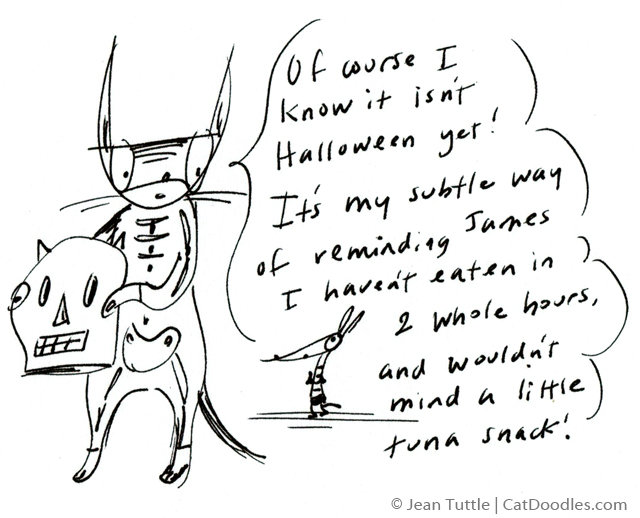 Of course I
know it isn't
Halloween yet!
It's my subtle way
of reminding James
I haven't eaten in
2 whole hours,
and wouldn't
mind a little
tuna snack!
© Jean Tuttle | CatDoodles.com